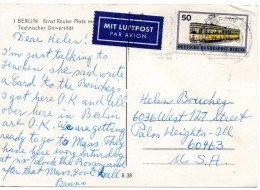 1 BERLIN Ernst Reuter Platz
Technischer Universität
MIT LUFTPOST
PAR AVION
50
DEUTSCHE BUNDESPOST BERLIN
Dear Helen,
I'm just talking to
she said write
a card to the
I got here O.K and all
over here in Berlin
are O.K. We are getting
ready to go to Mass. They
have here every Saturday
at six o'clock the Rosary and
so far that Mass.
Helen
6036 West 127 Street
Palos Heights - Ill
60463
U.S.A.
B 38